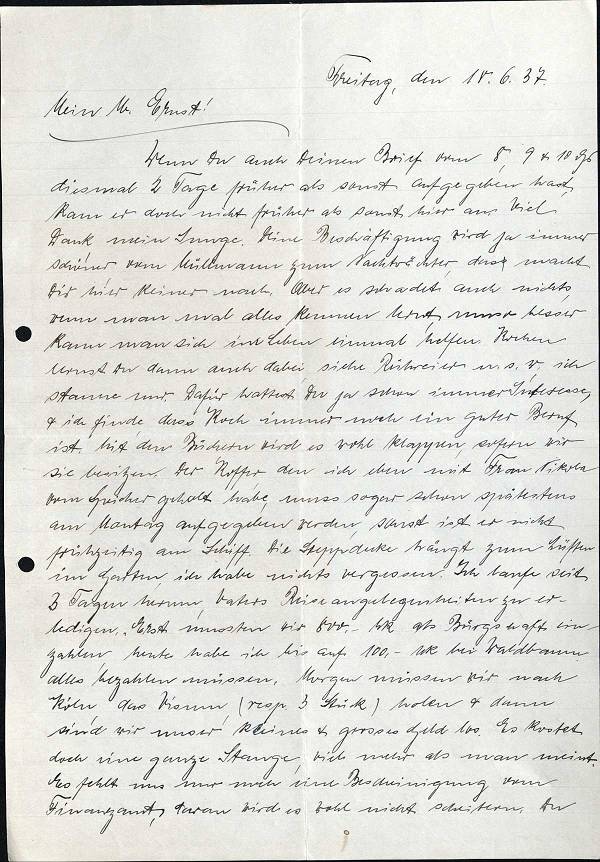 Freitag, den 18.6.37.
Mein lb. Ernst!
Wenn Du auch Deinen Brief vom 8, 9 & 10 ds
diesmal 2 Tage früher als sonst aufgegeben hast,
kam er doch nicht früher als sonst hier an. Viel
Dank mein Junge. Deine Beschäftigung wird ja immer
schöner vom Müllmann zum Nachtwächter, das macht
Dir hier keiner nach. Aber es schadet auch nichts,
wenn man mal alles kennen lernt, umso besser
kann man sich im Leben einmal helfen. Kochen
lernst Du dann auch dabei, siehe Rühreier u.s.w. ich
staune nur. Dafür hattest Du ja schon immer Interesse,
& ich finde dass Koch immer noch ein guter Beruf
ist. Mit den Büchern wird es wohl klappen sofern wir
sie besitzen. Der Koffer, den ich eben mit Frau Nikola
vom Speicher geholt habe, muss sogar schon spätestens
am Montag aufgegeben werden, sonst ist er nicht
frühzeitig am Schiff. Die Steppdecke hängt zum Lüften
im Garten, ich habe nichts vergessen. Ich laufe seit
3 Tagen herum, Vaters Reiseangelegenheiten zu er-
ledigen. Erst mussten wir 800.- Mk als Bürgschaft ein-
zahlen heute habe ich bis auf 100,- Mk bei Waldbaum
alles bezahlen müssen. Morgen müssen wir nach
Köln das Visum (resp. 3 Stück) holen & dann
sind wir unser kleines & grosses Geld los. Es kostet
doch eine ganze Stange, viel mehr als man meint.
Es fehlt uns nur noch eine Bescheinigung vom
Finanzamt, daran wird es wohl nicht scheitern. Du